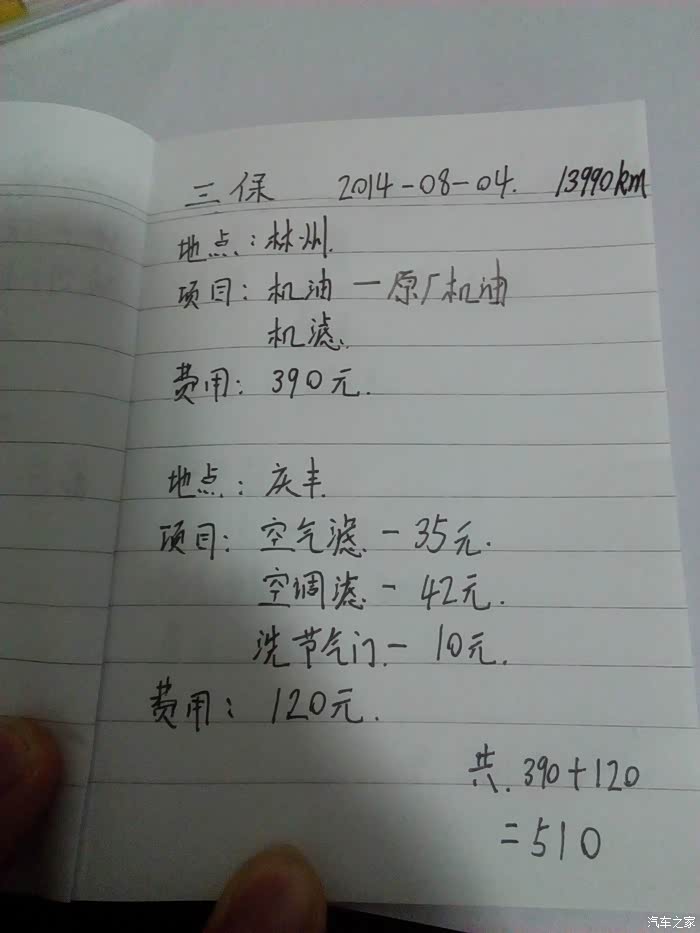 三保 2014-08-04. 13990km
地点：林州.
项目：机油 — 原厂机油
机滤.
费用：390元.
地点：庆丰.
项目：空气滤 - 35元.
空调滤 - 42元.
洗节气门 - 10元.
费用：120元.
共. 390+120
=510
汽车之家